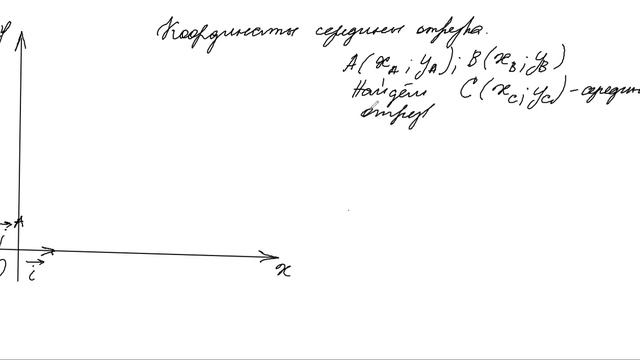 Координаты середины отрезка.
A(x_A; y_A); B(x_B; y_B)
Найдём C(x_C; y_C) - середин
отрез
y
j
O
i
x